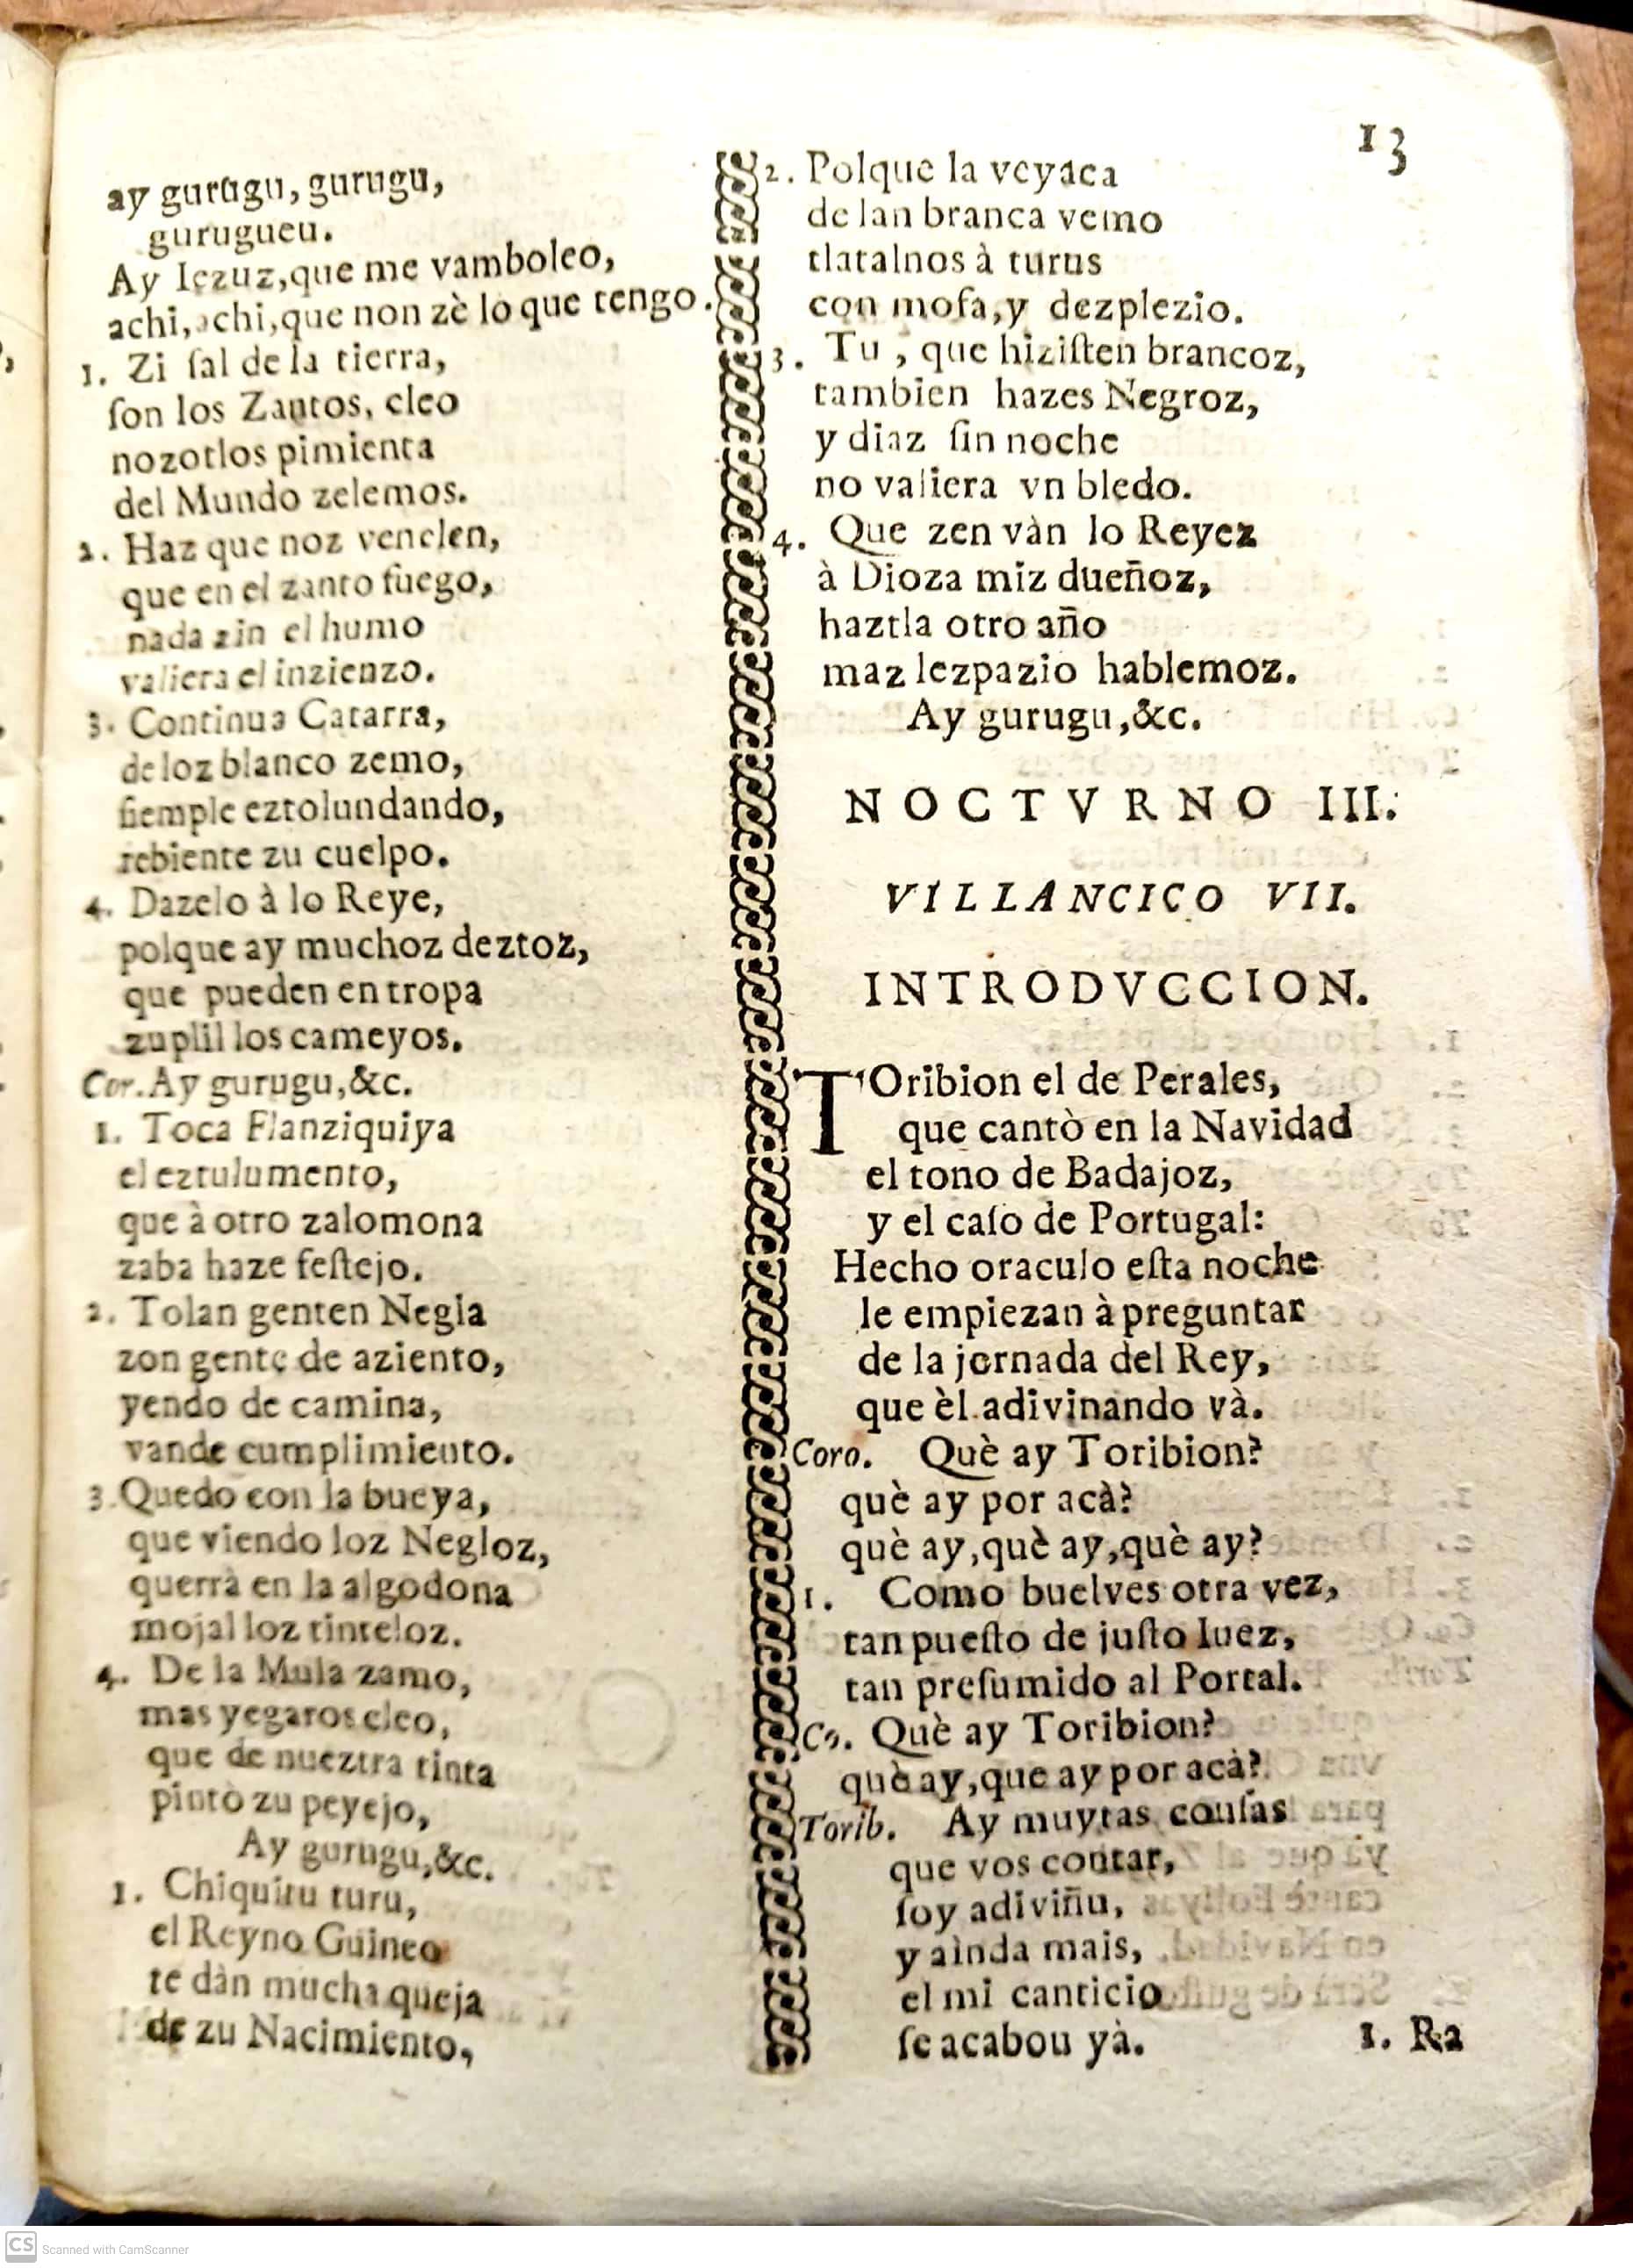 13
ay gurugu, gurugu,
gurugueu.
Ay Iezuz, que me vamboleo,
achi, achi, que non zè lo que tengo.
1. Zi ſal de la tierra,
ſon los Zantos, cleo
nozotlos pimienta
del Mundo zelemos.
2. Haz que noz venelen,
que en el zanto fuego,
nada zin el humo
valiera el inzienzo.
3. Continua Catarra,
de loz blanco zemo,
ſiemple eztolundando,
rebiente zu cuelpo.
4. Dazelo à lo Reye,
polque ay muchoz deztoz,
que pueden en tropa
zuplil los cameyos.
Cor. Ay gurugu, &c.
1. Toca Flanziquiya
el eztulumento,
que à otro zalomona
zaba haze feſtejo.
2. Tolan genten Negla
zon gente de aziento,
yendo de camina,
vande cumplimiento.
3. Quedo con la bueya,
que viendo loz Negloz,
querrà en la algodona
mojal loz tinteloz.
4. De la Mula zamo,
mas yegaros cleo,
que de nueztra tinta
pintò zu peyejo,
Ay gurugu, &c.
1. Chiquitu turu,
el Reyno Guineo
te dàn mucha queja
de zu Nacimiento,
2. Polque la veyaca
de lan branca vemo
tlatalnos à turus
con mofa, y dezplezio.
3. Tu, que hiziſten brancoz,
tambien hazes Negroz,
y diaz ſin noche
no valiera vn bledo.
4. Que zen vàn lo Reyez
à Dioza miz dueñoz,
haztla otro año
maz lezpazio hablemoz.
Ay gurugu, &c.
NOCTVRNO III.
VILLANCICO VII.
INTRODVCCION.
TOribion el de Perales,
que cantò en la Navidad
el tono de Badajoz,
y el caſo de Portugal:
Hecho oraculo eſta noche
le empiezan à preguntar
de la jornada del Rey,
que èl adivinando và.
Coro. Què ay Toribion?
què ay por acà?
què ay, què ay, què ay?
1. Como buelves otra vez,
tan pueſto de juſto Iuez,
tan preſumido al Portal.
Co. Què ay Toribion?
què ay, que ay por acà?
Torib. Ay muytas couſas
que vos contar,
ſoy adiviñu,
y ainda mais,
el mi canticio
ſe acabou yà.
1. Ra
CS Scanned with CamScanner